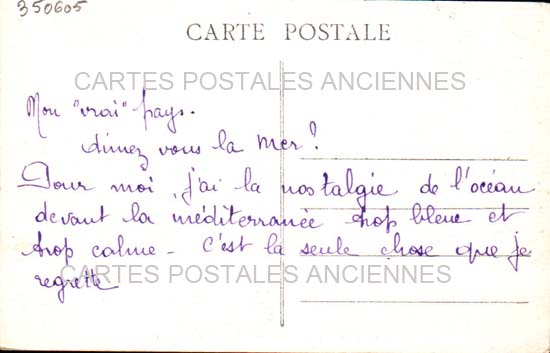 350605
CARTE POSTALE
CARTES POSTALES ANCIENNES
Mon "vrai" pays.
Aimez vous la mer?
Pour moi, j'ai la nostalgie de l'océan
devant la méditerranée trop bleue et
trop calme - C'est la seule chose que je
regrette!
CARTES POSTALES ANCIENNES